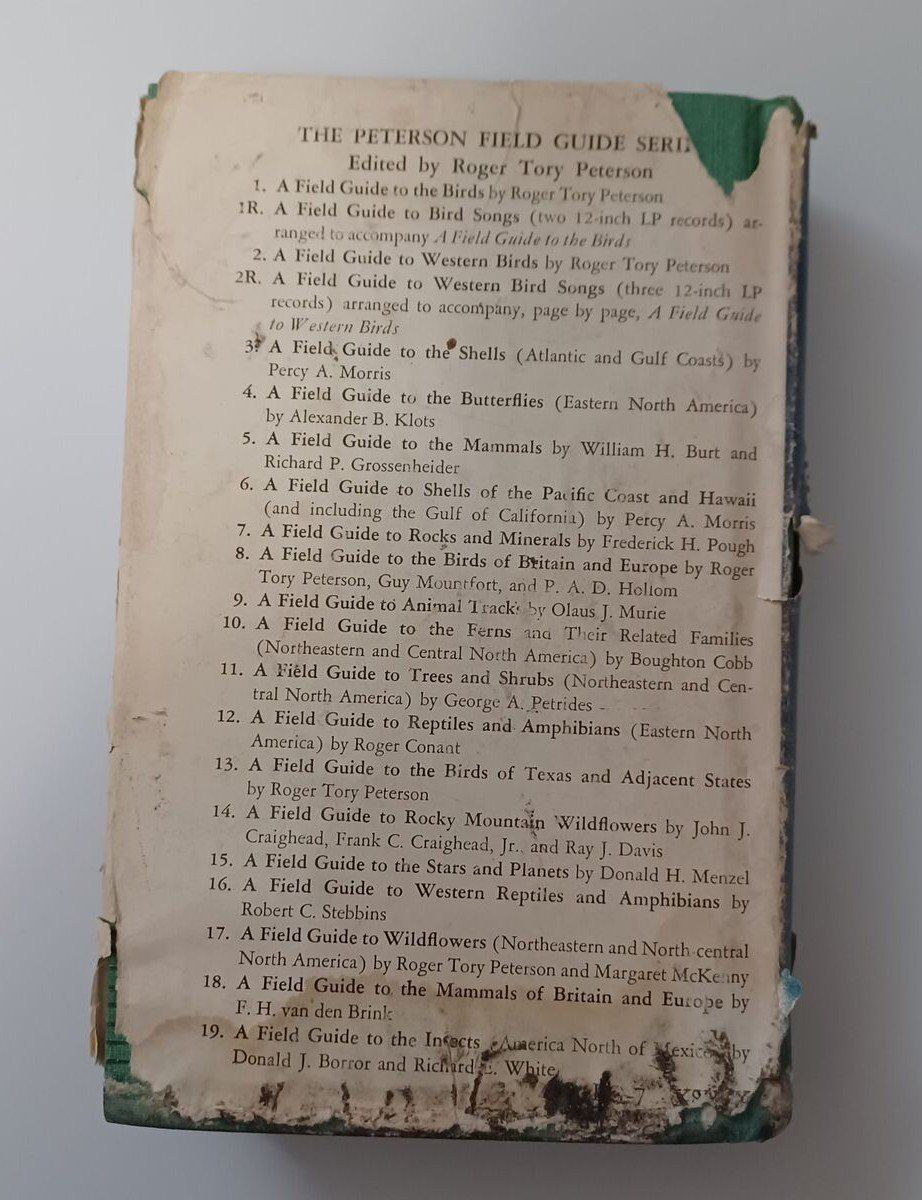 THE PETERSON FIELD GUIDE SERI
Edited by Roger Tory Peterson
1. A Field Guide to the Birds by Roger Tory Peterson
1R. A Field Guide to Bird Songs (two 12-inch LP records) ar-
ranged to accompany A Field Guide to the Birds
2. A Field Guide to Western Birds by Roger Tory Peterson
2R. A Field Guide to Western Bird Songs (three 12-inch LP
records) arranged to accompany, page by page, A Field Guide
to Western Birds
3. A Field Guide to the Shells (Atlantic and Gulf Coasts) by
Percy A. Morris
4. A Field Guide to the Butterflies (Eastern North America)
by Alexander B. Klots
5. A Field Guide to the Mammals by William H. Burt and
Richard P. Grossenheider
6. A Field Guide to Shells of the Pacific Coast and Hawaii
(and including the Gulf of California) by Percy A. Morris
7. A Field Guide to Rocks and Minerals by Frederick H. Pough
8. A Field Guide to the Birds of Britain and Europe by Roger
Tory Peterson, Guy Mountfort, and P. A. D. Hollom
9. A Field Guide to Animal Tracks by Olaus J. Murie
10. A Field Guide to the Ferns and Their Related Families
(Northeastern and Central North America) by Boughton Cobb
11. A Field Guide to Trees and Shrubs (Northeastern and Cen-
tral North America) by George A. Petrides
12. A Field Guide to Reptiles and Amphibians (Eastern North
America) by Roger Conant
13. A Field Guide to the Birds of Texas and Adjacent States
by Roger Tory Peterson
14. A Field Guide to Rocky Mountain Wildflowers by John J.
Craighead, Frank C. Craighead, Jr., and Ray J. Davis
15. A Field Guide to the Stars and Planets by Donald H. Menzel
16. A Field Guide to Western Reptiles and Amphibians by
Robert C. Stebbins
17. A Field Guide to Wildflowers (Northeastern and North-central
North America) by Roger Tory Peterson and Margaret McKenny
18. A Field Guide to the Mammals of Britain and Europe by
F. H. van den Brink
19. A Field Guide to the Insects America North of Mexico by
Donald J. Borror and Richard E. White